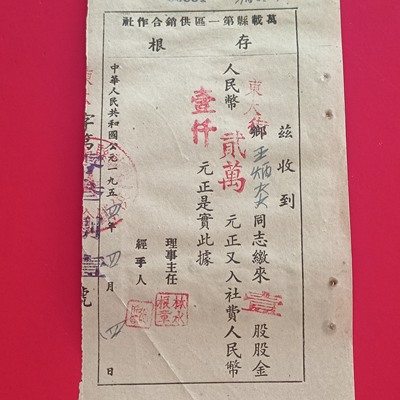 萬載縣第一區供銷合作社
存根
茲收到
東大街鄉王炳炎同志繳來壹股股金
人民幣貳萬元正又入社費人民幣
壹仟元正是實此據
理事主任
經手人
中華人民共和國公元一九五四年四月四日
字第號